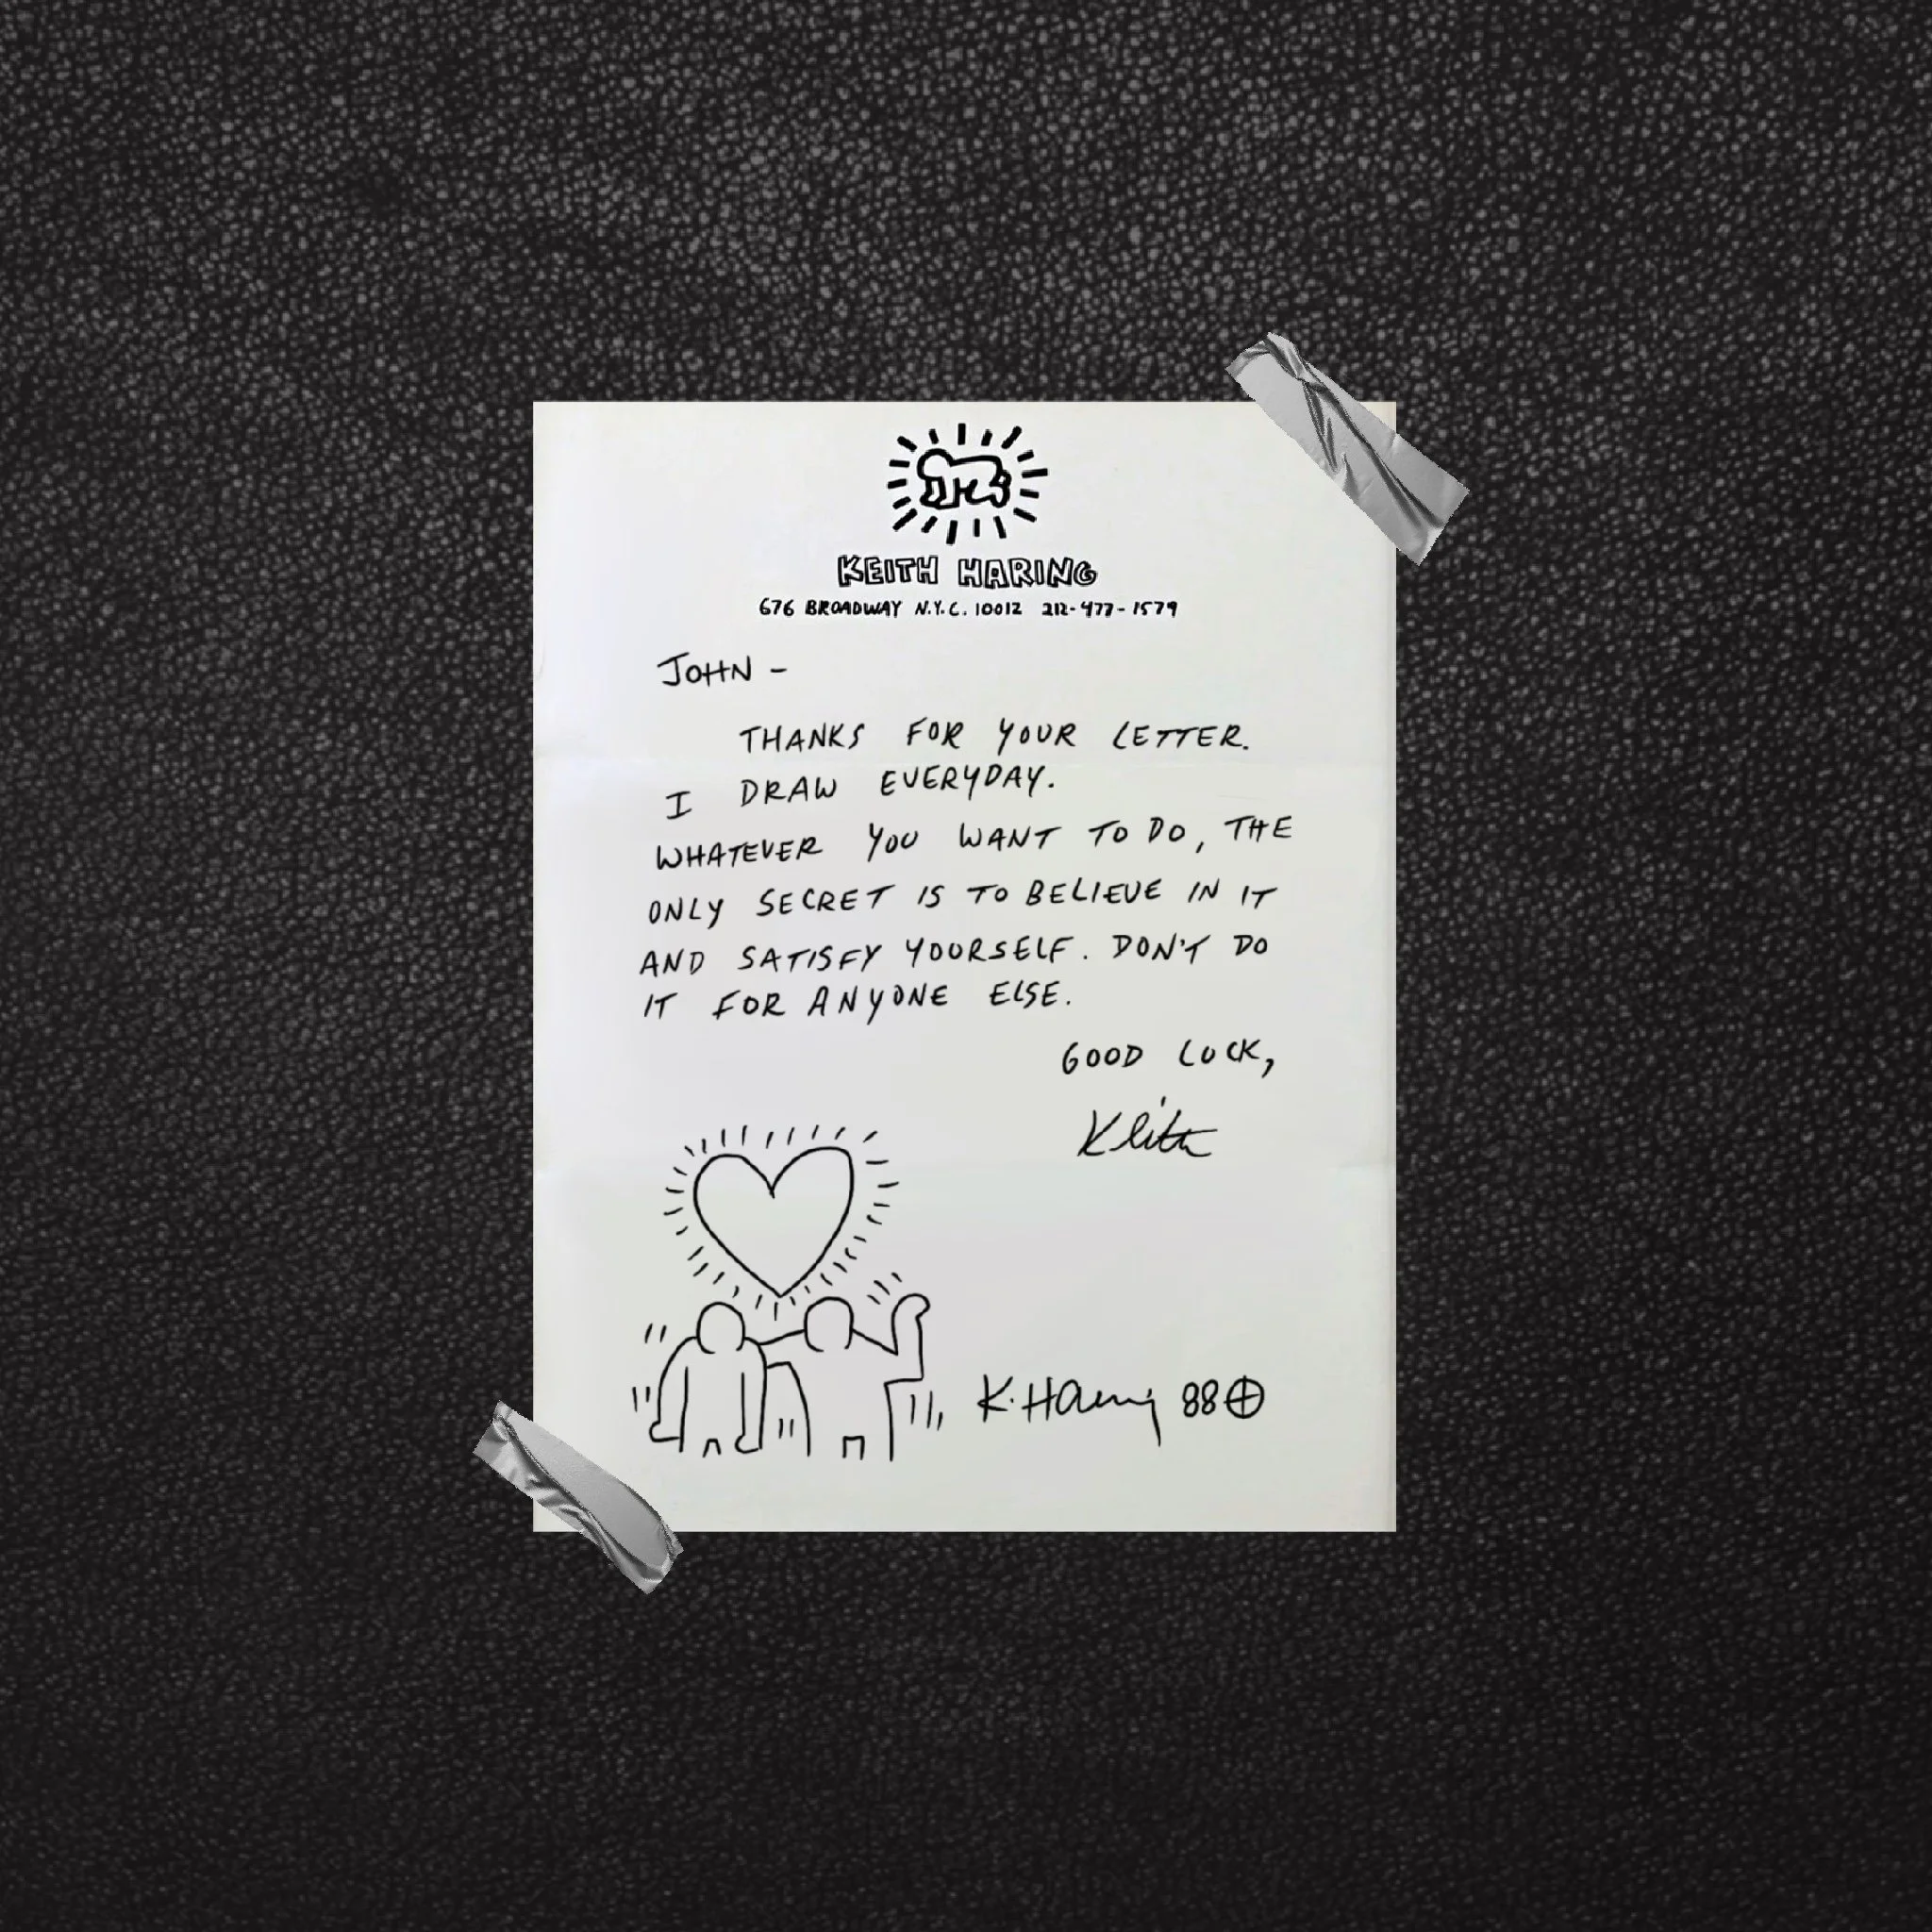 KEITH HARING
676 BROADWAY N.Y.C. 10012 212-477-1579
JOHN -
THANKS FOR YOUR LETTER.
I DRAW EVERYDAY.
WHATEVER YOU WANT TO DO, THE
ONLY SECRET IS TO BELIEVE IN IT
AND SATISFY YOURSELF. DON'T DO
IT FOR ANYONE ELSE.
GOOD LUCK,
Keith
K. Haring 88